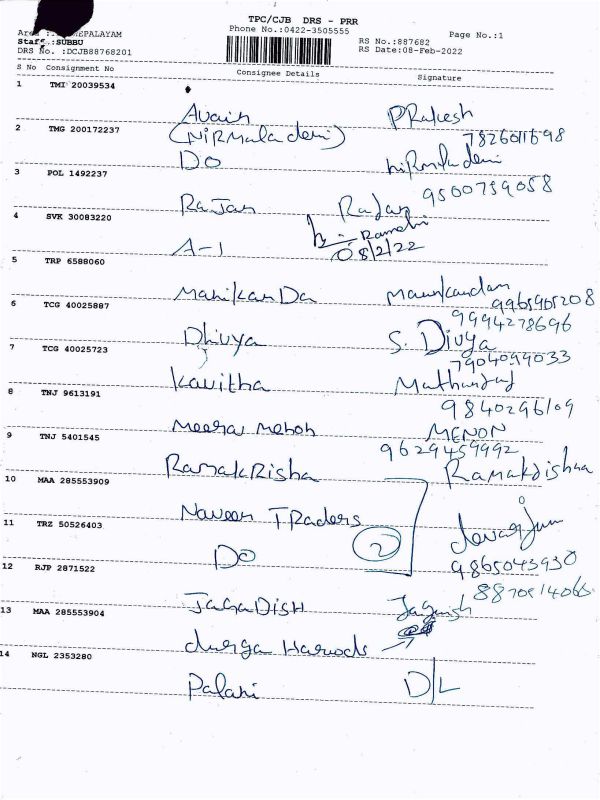 TPC/CJB DRS - PRR
Phone No.:0422-3505555 Page No.:1
EPALAYAM
Staff :SUBBU RS No.:887682
DRS No. :DCJB88768201 RS Date:08-Feb-2022
S No Consignment No Consignee Details Signature
1 TMI 20039534
Avain PRakesh
2 TMG 200172237
(NiRmala devi) 7826011698
DO NiRmala devi
3 POL 1492237
9500759058
RaJan Rajan
4 SVK 30083220
Ramesh
A-1 08/2/22
5 TRP 6588060
ManikanDa Manikandan
9965965208
6 TCG 40025887
9994278696
Dhivya S. Divya
7 TCG 40025723
7904099033
Kavitha
8 TNJ 9613191
9840296109
Meera Menon MENON
9 TNJ 5401545
9629459992
RamakRisha Ramakrishna
10 MAA 285553909
Naveen TRaders
11 TRZ 50526403
DO 2
9865043930
12 RJP 2871522
8870514065
JagaDish Jagadish
13 MAA 285553904
durga
14 NGL 2353280
Palani D/L